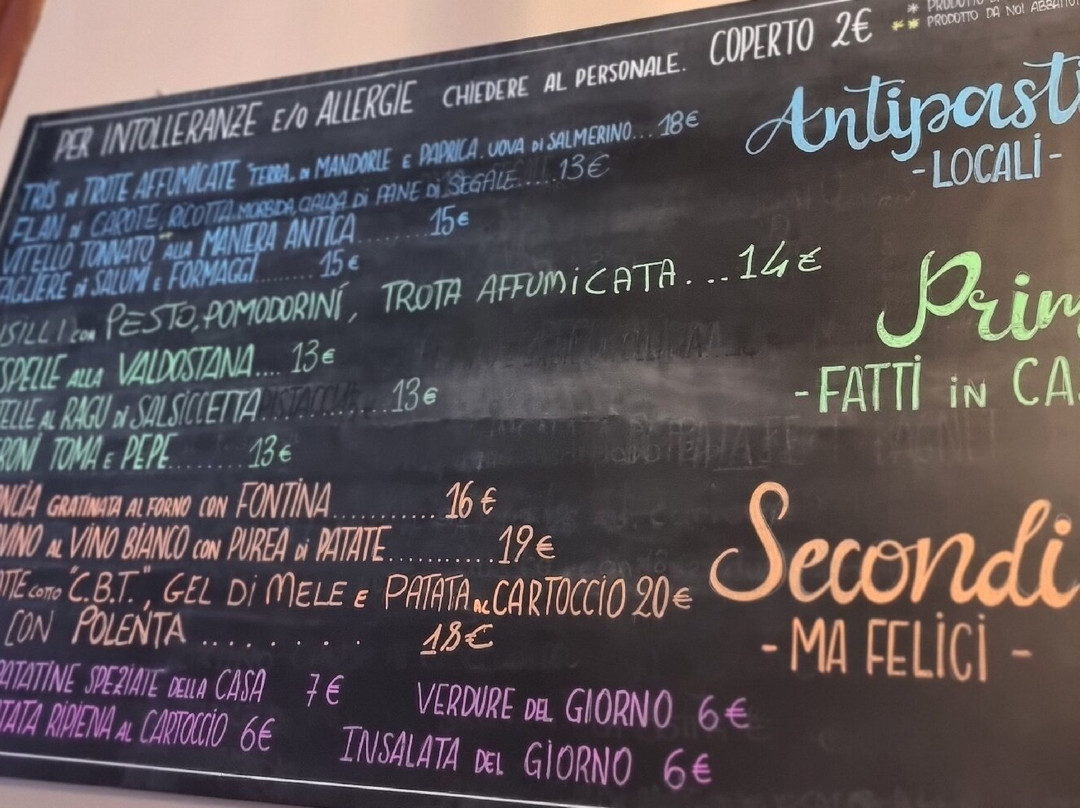 * PRODOTTO
** PRODOTTO DA NOI
PER INTOLLERANZE E/O ALLERGIE CHIEDERE AL PERSONALE. COPERTO 2€
Antipasti
- LOCALI -
TRIS DI TROTE AFFUMICATE "TERRA" DI MANDORLE E PAPRICA. UOVA DI SALMERINO... 18€
FLAN DI CAROTE, RICOTTA MORBIDA, CIALDA DI PANE DI SEGALE.... 13€
VITELLO TONNATO** ALLA MANIERA ANTICA........ 15€
TAGLIERE DI SALUMI E FORMAGGI....... 15€
Prim
- FATTI IN CA
USILLI CON PESTO, POMODORINI, TROTA AFFUMICATA... 14€
ESPELLE ALLA VALDOSTANA.... 13€
TELLE AL RAGU DI SALSICCETTA.......... 13€
RONI TOMA E PEPE........ 13€
Secondi
- MA FELICI -
NCIA GRATINATA AL FORNO CON FONTINA........... 16€
OVINO AL VINO BIANCO CON PUREA DI PATATE........... 19€
TTE COTTO "C.B.T.", GEL DI MELE E PATATA AL CARTOCCIO 20€
CON POLENTA ........ 18€
PATATINE SPEZIATE DELLA CASA 7€ VERDURE DEL GIORNO 6€
TATA RIPIENA AL CARTOCCIO 6€ INSALATA DEL GIORNO 6€